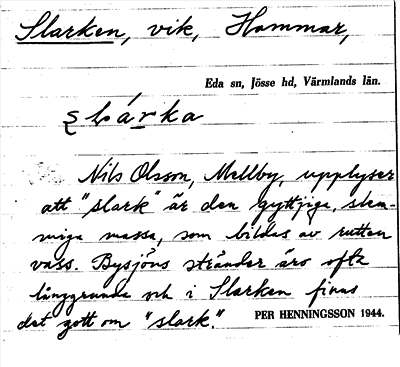 Slarken, vik, Hammar,
Eda sn, Jösse hd, Värmlands län.
Nils Olsson, Mellby, upplyser
att "slark" är den gyttjiga, slem-
miga massa, som bildas av rutten
vass. Bysjöns stränder äro ofta
långgrunda och i Slarken finns
det gott om "slark."
PER HENNINGSSON 1944.